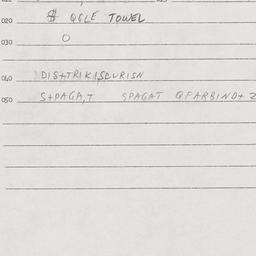 020 $ QGLE TOWEL
030 O
040 DISTRIKISCURISN
050 S+PAGA,T SPAGAT QFARBIND+ 2